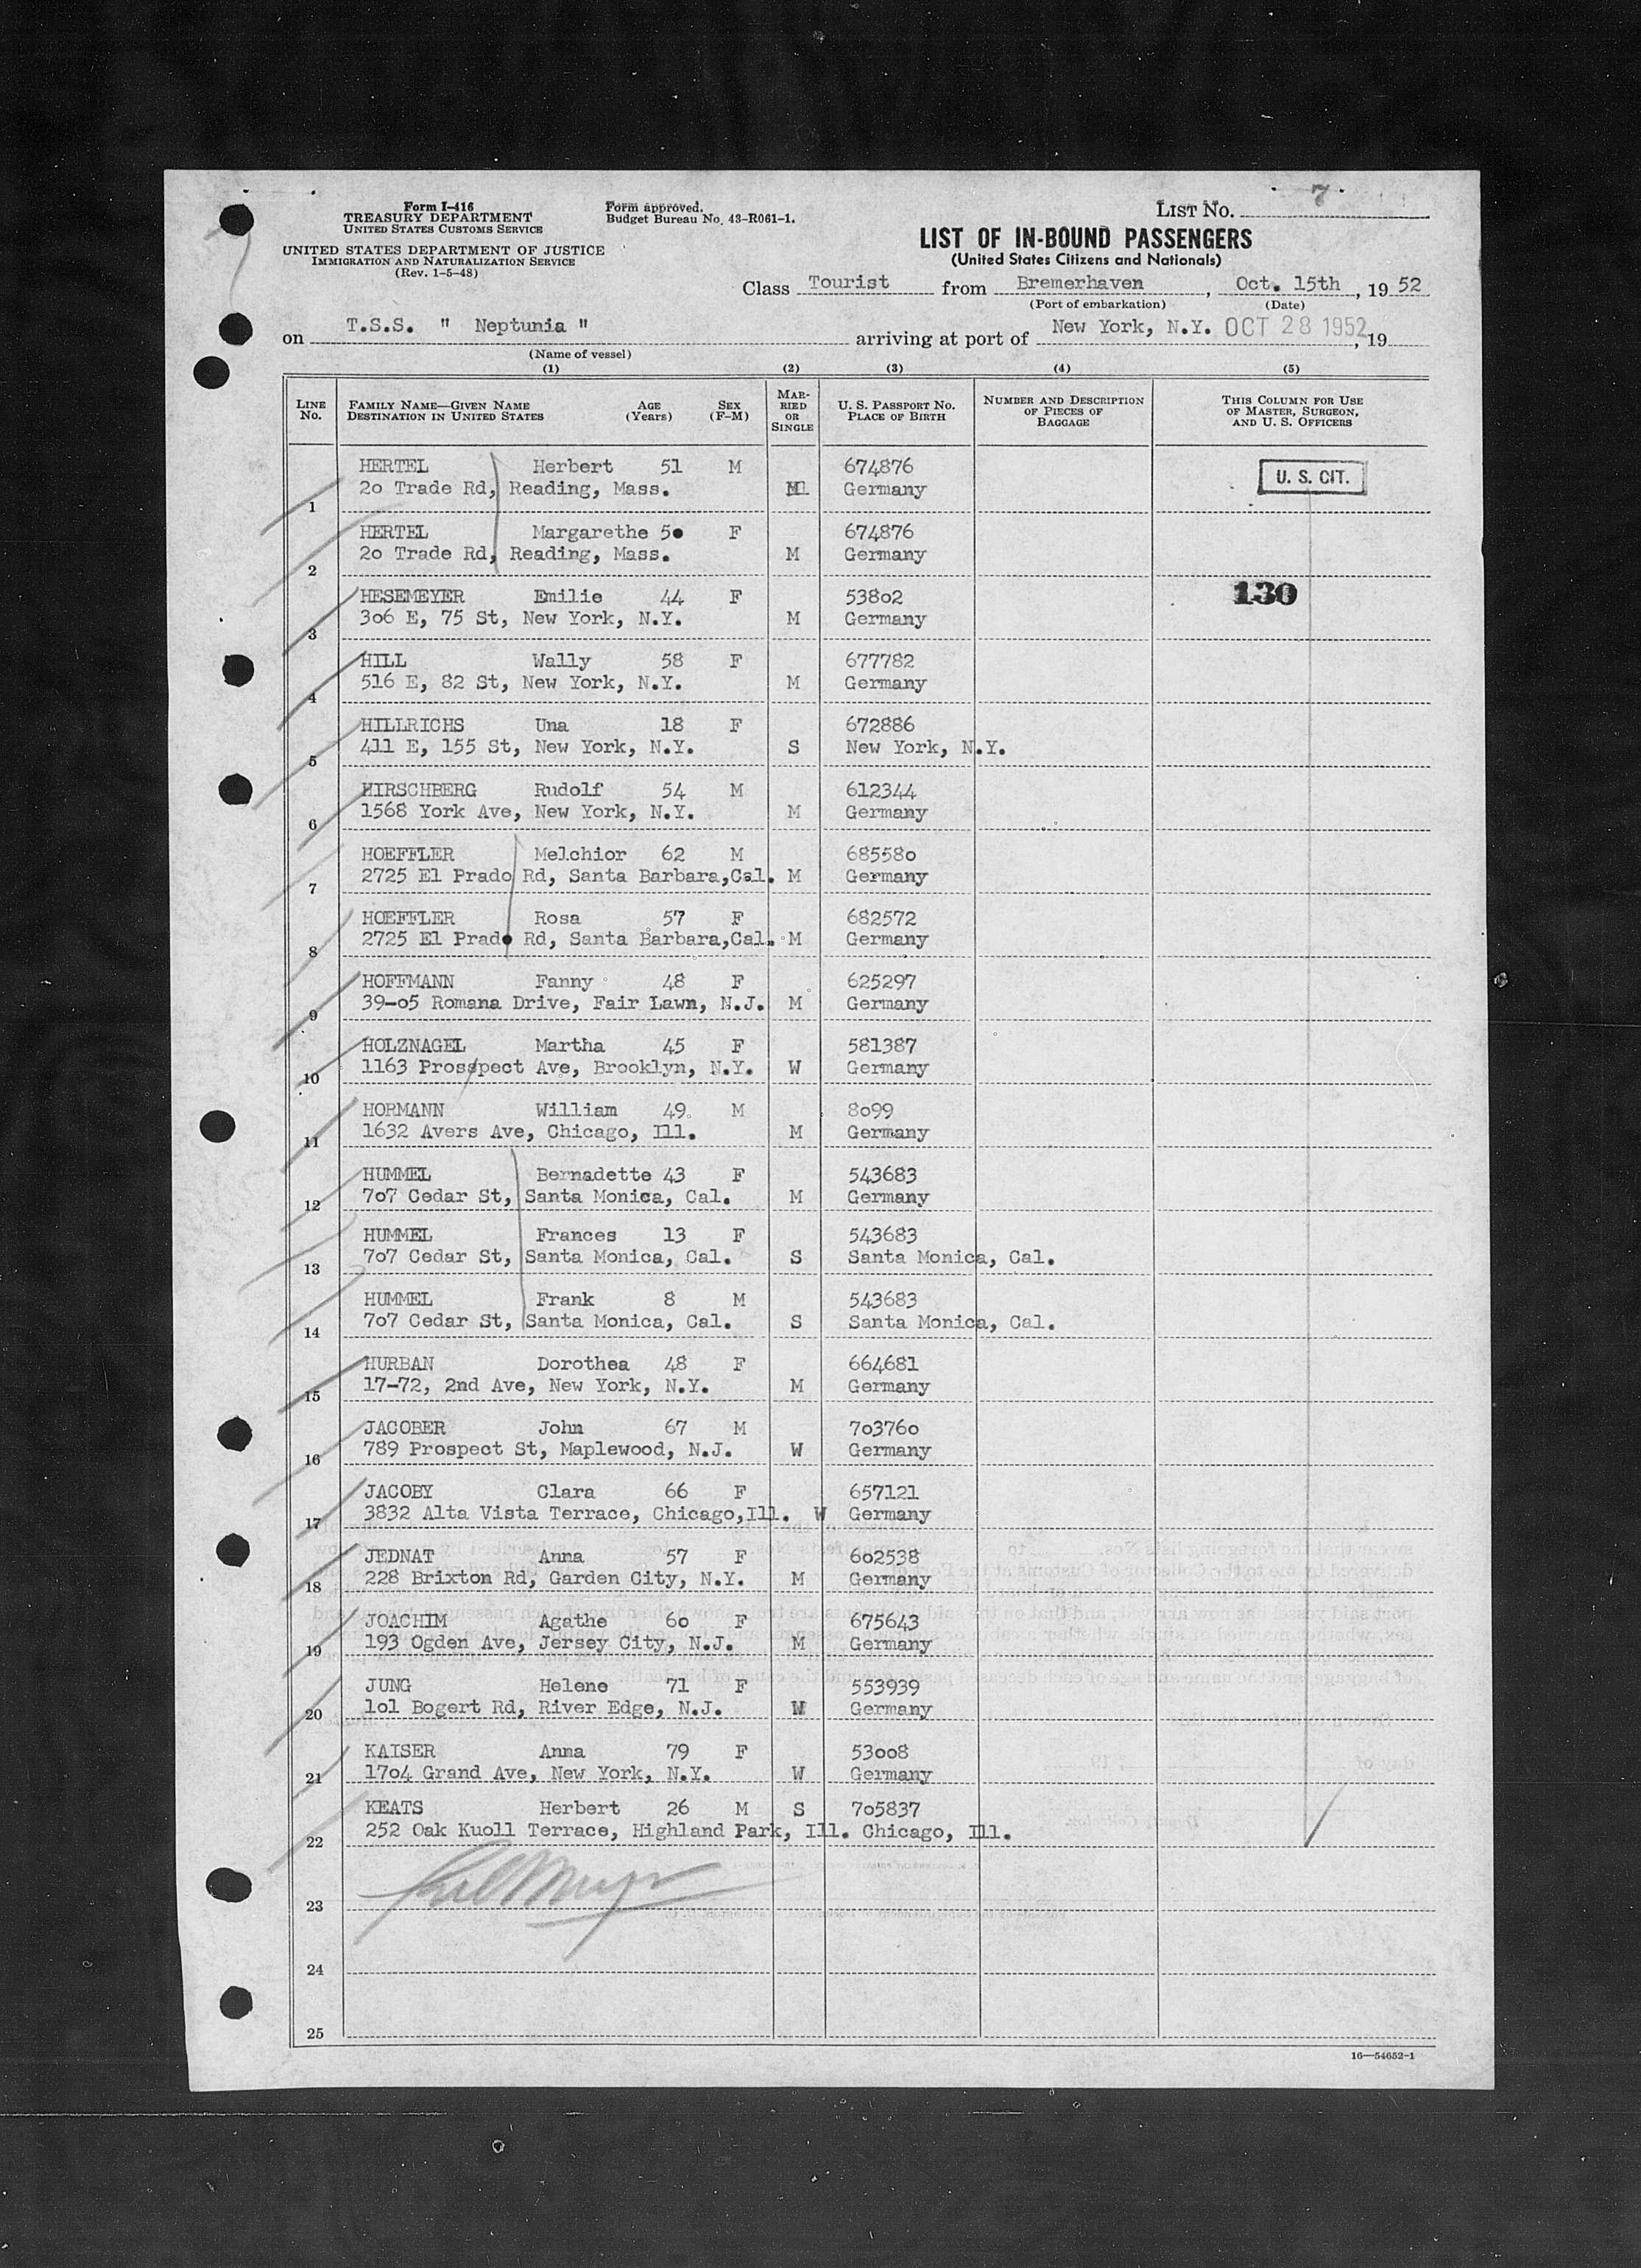 7
Form I-416
TREASURY DEPARTMENT
UNITED STATES CUSTOMS SERVICE
Form approved.
Budget Bureau No. 43-R061-1.
LIST NO.
UNITED STATES DEPARTMENT OF JUSTICE
IMMIGRATION AND NATURALIZATION SERVICE
(Rev. 1-5-48)
LIST OF IN-BOUND PASSENGERS
(United States Citizens and Nationals)
Class Tourist from Bremerhaven, Oct. 15th, 19 52
(Port of embarkation) (Date)
on T.S.S. " Neptunia " arriving at port of New York, N.Y. OCT 28 1952, 19
(Name of vessel)
(1) (2) (3) (4) (5)
LINE No. FAMILY NAME—GIVEN NAME DESTINATION IN UNITED STATES AGE (Years) SEX (F-M) MARRIED OR SINGLE U. S. PASSPORT NO. PLACE OF BIRTH NUMBER AND DESCRIPTION OF PIECES OF BAGGAGE THIS COLUMN FOR USE OF MASTER, SURGEON, AND U. S. OFFICERS
HERTEL Herbert 51 M 674876 U. S. CIT.
1 20 Trade Rd, Reading, Mass. M Germany
HERTEL Margarethe 50 F 674876
2 20 Trade Rd, Reading, Mass. M Germany
HESEMEYER Emilie 44 F 53802 130
3 306 E, 75 St, New York, N.Y. M Germany
HILL Wally 58 F 677782
4 516 E, 82 St, New York, N.Y. M Germany
HILLRICHS Una 18 F 672886
5 411 E, 155 St, New York, N.Y. S New York, N.Y.
HIRSCHBERG Rudolf 54 M 612344
6 1568 York Ave, New York, N.Y. M Germany
HOEFFLER Melchior 62 M 685580
7 2725 El Prado Rd, Santa Barbara,Cal. M Germany
HOEFFLER Rosa 57 F 682572
8 2725 El Prado Rd, Santa Barbara,Cal. M Germany
HOFFMANN Fanny 48 F 625297
9 39-05 Romana Drive, Fair Lawn, N.J. M Germany
HOLZNAGEL Martha 45 F 581387
10 1163 Prospect Ave, Brooklyn, N.Y. W Germany
HORMANN William 49 M 8099
11 1632 Avers Ave, Chicago, Ill. M Germany
HUMMEL Bernadette 43 F 543683
12 707 Cedar St, Santa Monica, Cal. M Germany
HUMMEL Frances 13 F 543683
13 707 Cedar St, Santa Monica, Cal. S Santa Monica, Cal.
HUMMEL Frank 8 M 543683
14 707 Cedar St, Santa Monica, Cal. S Santa Monica, Cal.
HURBAN Dorothea 48 F 664681
15 17-72, 2nd Ave, New York, N.Y. M Germany
JACOBER John 67 M 703760
16 789 Prospect St, Maplewood, N.J. W Germany
JACOBY Clara 66 F 657121
17 3832 Alta Vista Terrace, Chicago,Ill. W Germany
JEDNAT Anna 57 F 602538
18 228 Brixton Rd, Garden City, N.Y. M Germany
JOACHIM Agathe 60 F 675643
19 193 Ogden Ave, Jersey City, N.J. M Germany
JUNG Helene 71 F 553939
20 101 Bogert Rd, River Edge, N.J. W Germany
KAISER Anna 79 F 53008
21 1704 Grand Ave, New York, N.Y. W Germany
KEATS Herbert 26 M S 705837
22 252 Oak Kuoll Terrace, Highland Park, Ill. Chicago, Ill.
23
24
25
16—54652-1